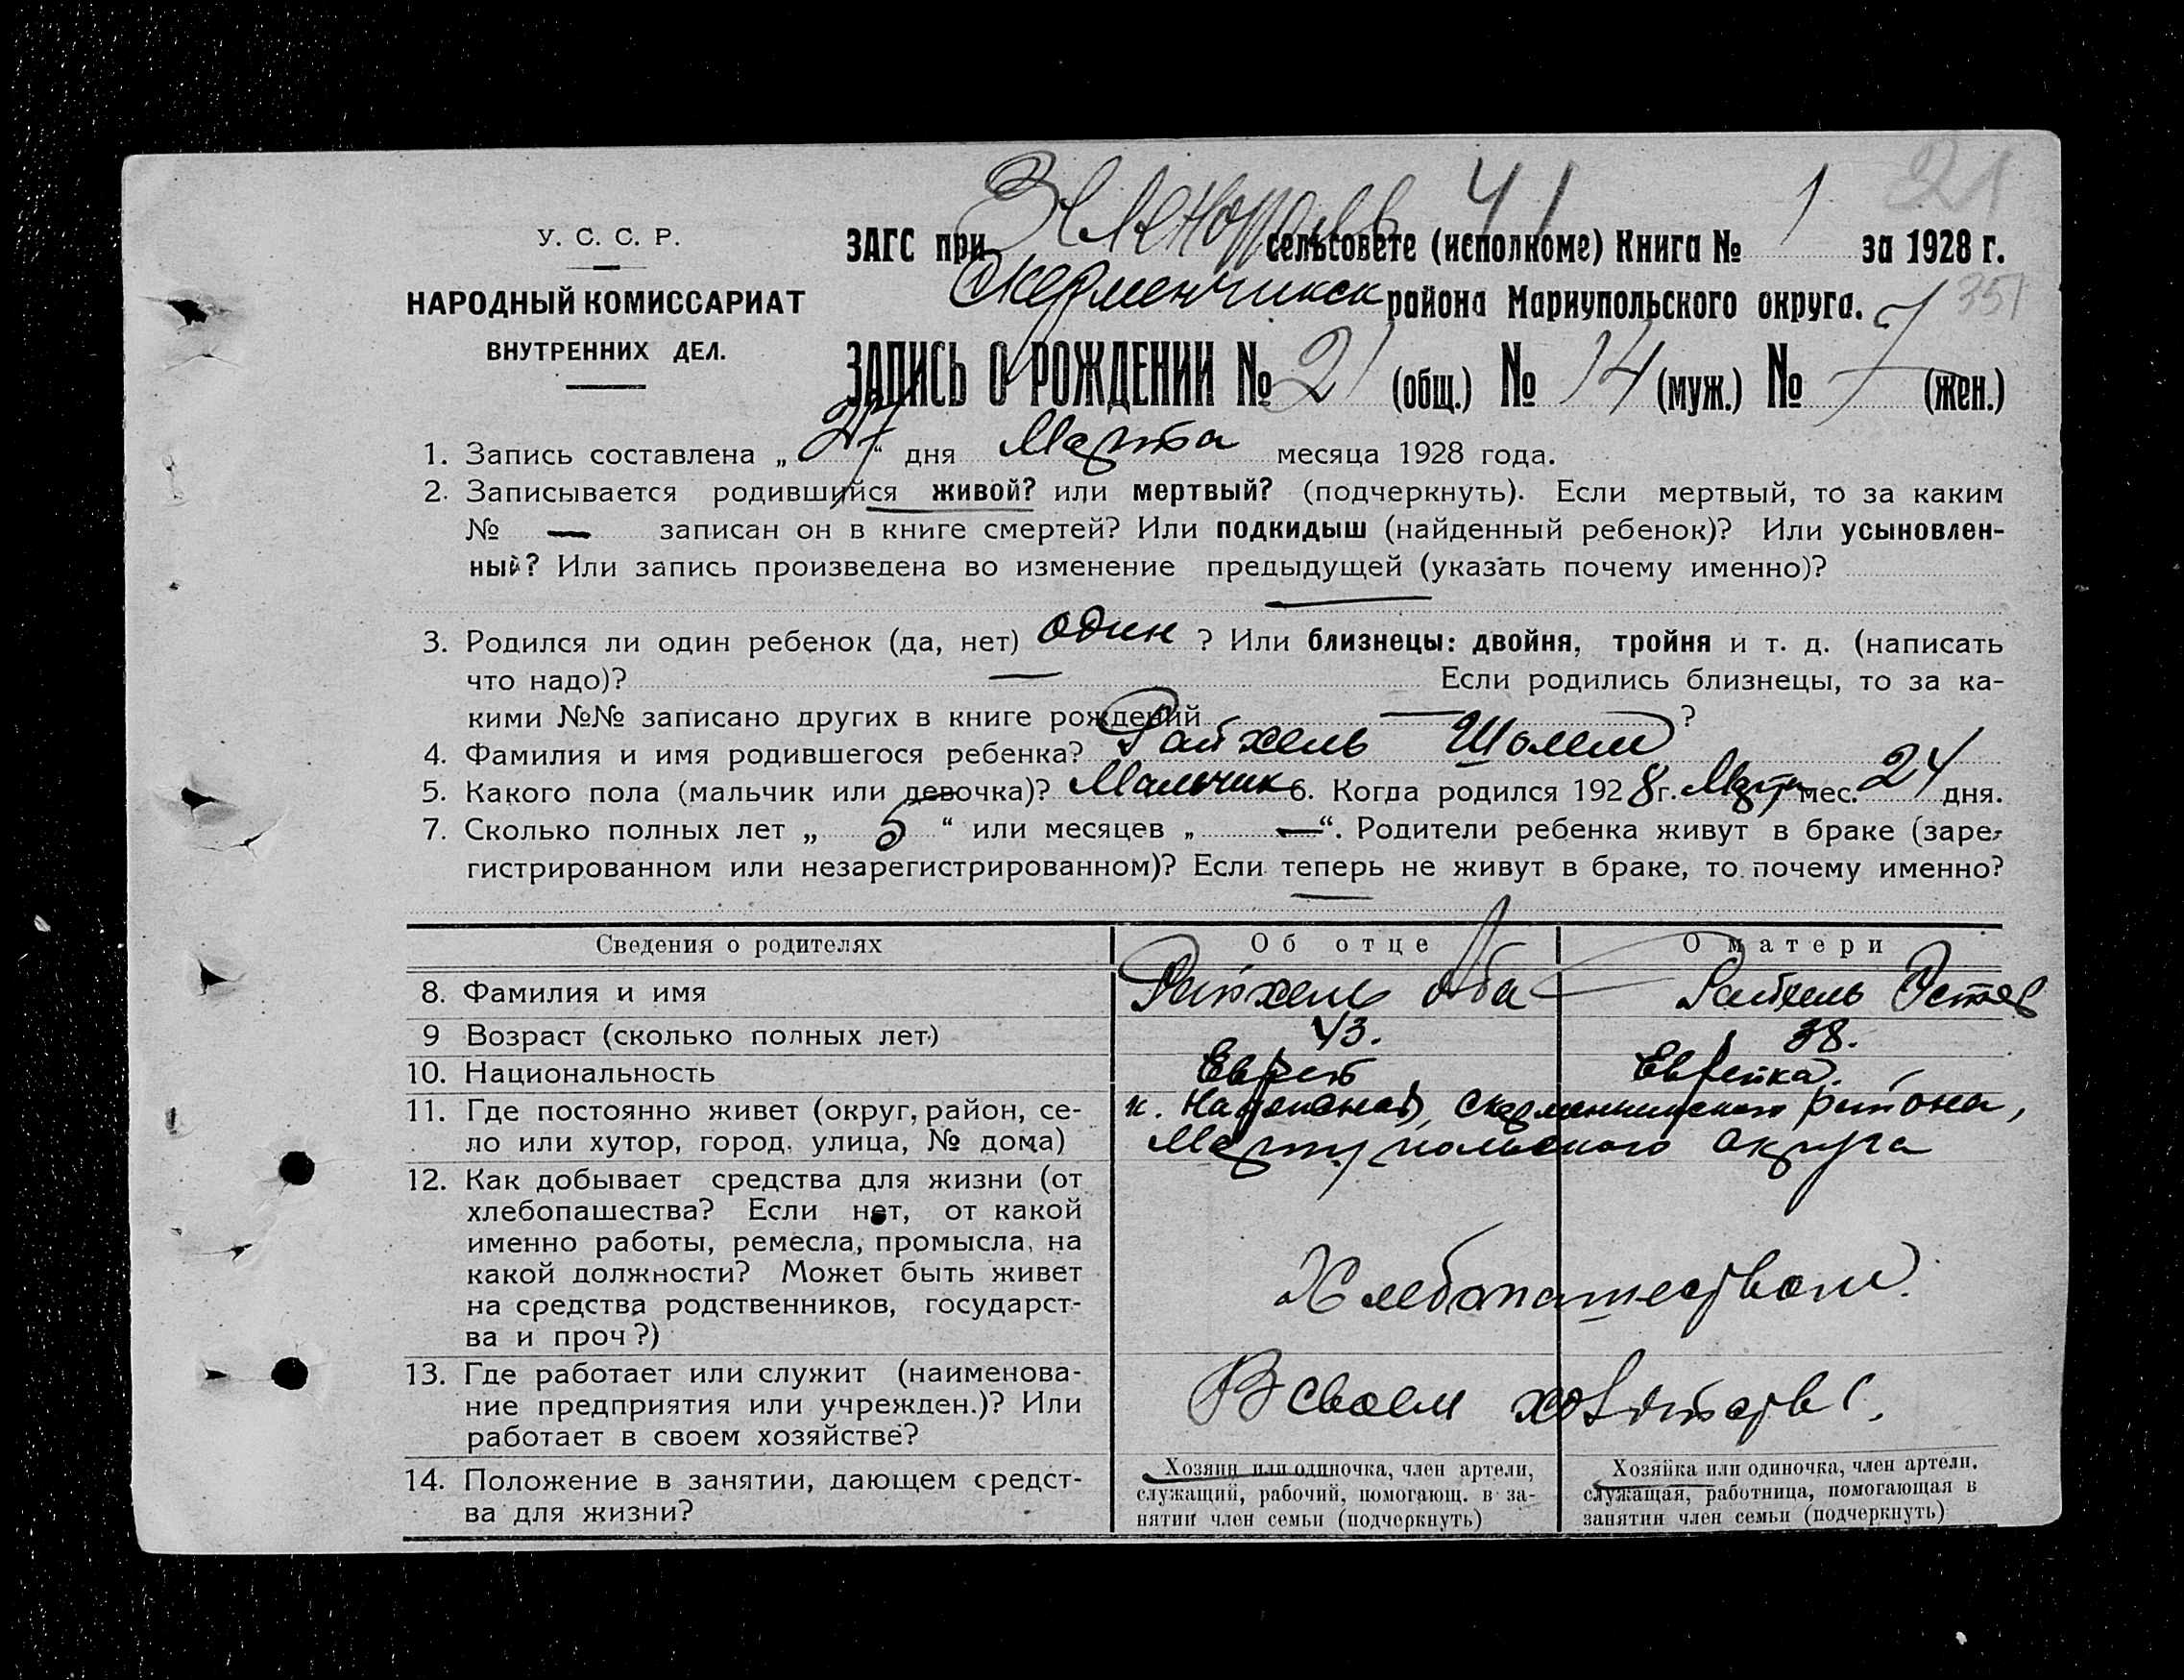 21
У. С. С. Р.
НАРОДНЫЙ КОМИССАРИАТ
ВНУТРЕННИХ ДЕЛ.
41
ЗАГС при сельсовете (исполкоме) Книга № 1 за 1928 г.
района Мариупольского округа.
351
ЗАПИСЬ О РОЖДЕНИИ № 21 (общ.) № 14 (муж.) № (жен.)
1. Запись составлена „ 27 “ дня Марта месяца 1928 года.
2. Записывается родившийся живой? или мертвый? (подчеркнуть). Если мертвый, то за каким
№ — записан он в книге смертей? Или подкидыш (найденный ребенок)? Или усыновлен-
ный? Или запись произведена во изменение предыдущей (указать почему именно)?
—
3. Родился ли один ребенок (да, нет) один ? Или близнецы: двойня, тройня и т. д. (написать
что надо)? — Если родились близнецы, то за ка-
кими №№ записано других в книге рождений — ?
4. Фамилия и имя родившегося ребенка? Райхель Шолем
5. Какого пола (мальчик или девочка)? Мальчик 6. Когда родился 1928 г. Март мес. 24 дня.
7. Сколько полных лет „ 5 “ или месяцев „ — “. Родители ребенка живут в браке (заре-
гистрированном или незарегистрированном)? Если теперь не живут в браке, то почему именно?
—
Сведения о родителях Об отце О матери
8. Фамилия и имя Райхель Аба Райхель
9 Возраст (сколько полных лет) 43. 38.
10. Национальность Еврей Еврейка.
11. Где постоянно живет (округ, район, се- района,
ло или хутор, город. улица, № дома) Мариупольского округа
12. Как добывает средства для жизни (от
хлебопашества? Если нет, от какой
именно работы, ремесла, промысла, на
какой должности? Может быть живет
на средства родственников, государст-
ва и проч?)
Хлебопашеством.
13. Где работает или служит (наименова-
ние предприятия или учрежден.)? Или
работает в своем хозяйстве?
В своем хозяйстве.
14. Положение в занятии, дающем средст-
ва для жизни?
Хозяин или одиночка, член артели,
служащий, рабочий, помогающ. в за-
нятии член семьи (подчеркнуть)
Хозяйка или одиночка, член артели.
служащая, работница, помогающая в
занятии член семьи (подчеркнуть)